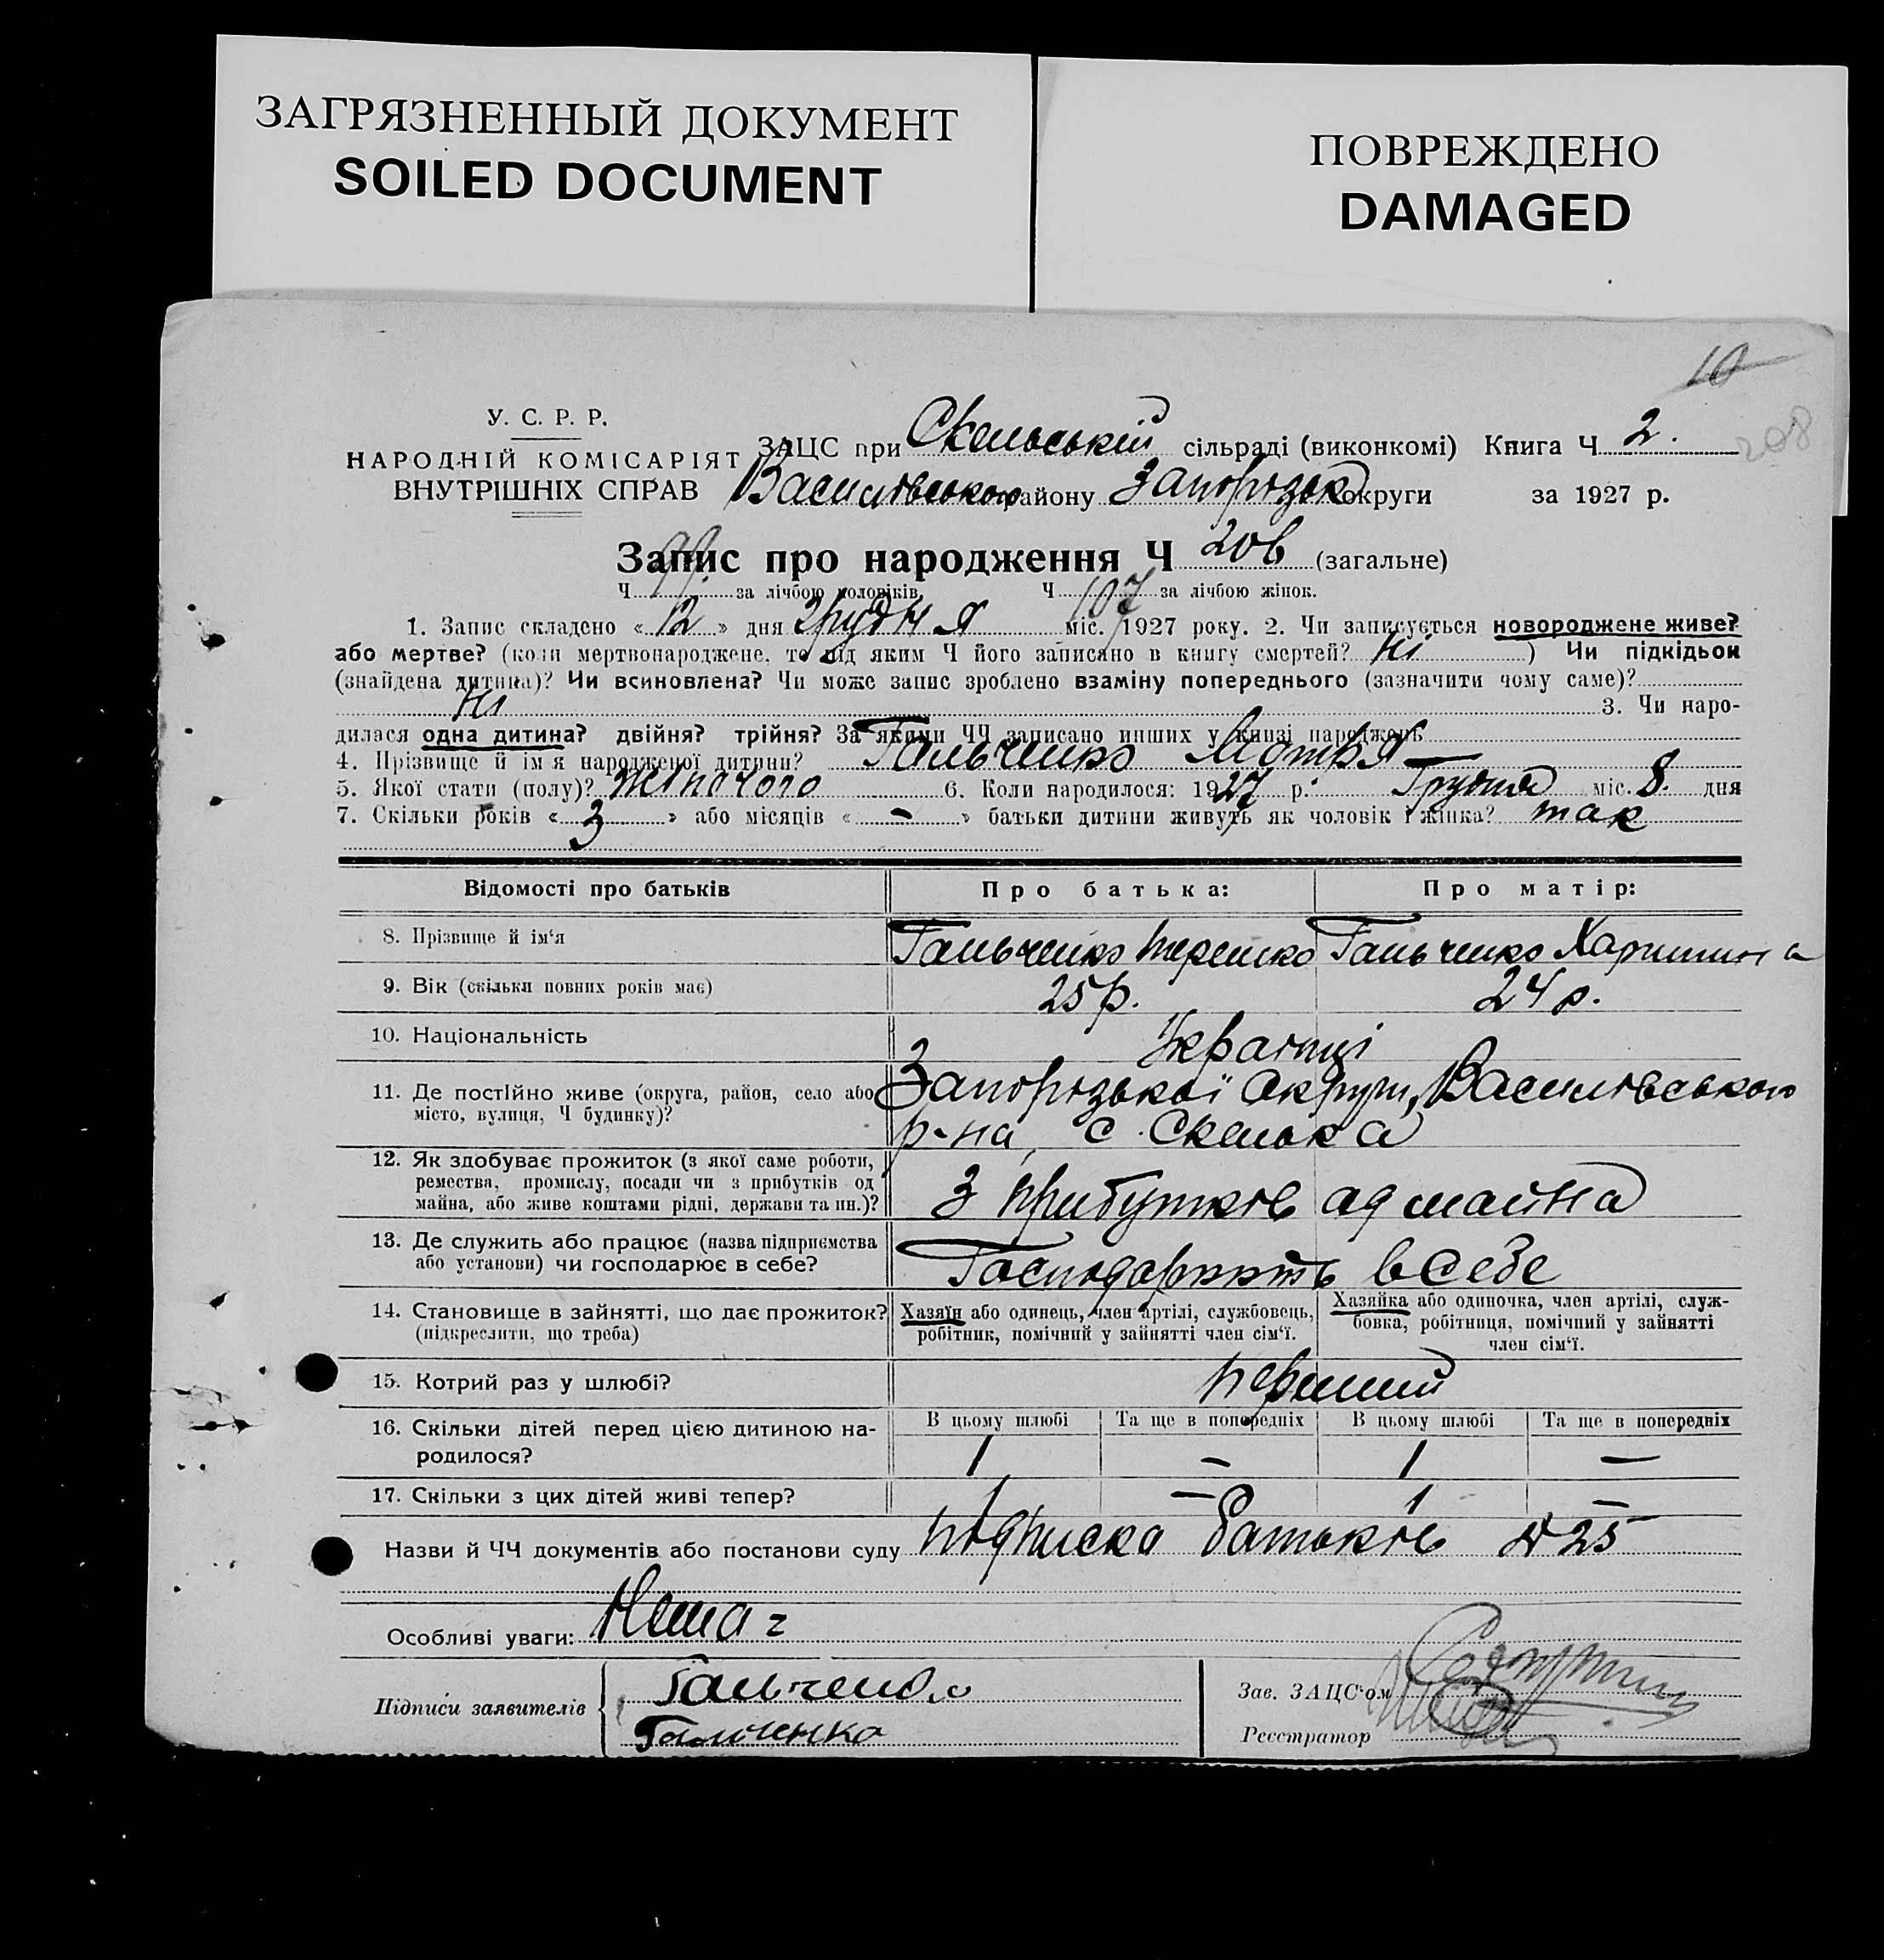 ЗАГРЯЗНЕННЫЙ ДОКУМЕНТ
SOILED DOCUMENT
ПОВРЕЖДЕНО
DAMAGED
10
208
У. С. Р. Р.
НАРОДНІЙ КОМІСАРІЯТ
ВНУТРІШНІХ СПРАВ
ЗАЦС при Скельській сільраді (виконкомі) Книга Ч 2.
Василівського району Запорізьк округи за 1927 р.
Запис про народження Ч 206 (загальне)
Ч 99. за лічбою чоловіків Ч 107 за лічбою жінок.
1. Запис складено « 12 » дня Грудня міс. 1927 року. 2. Чи записується новороджене живе?
або мертве? (коли мертвонароджене, то під яким Ч його записано в книгу смертей? Ні ) Чи підкідьок
(знайдена дитина)? Чи всиновлена? Чи може запис зроблено взаміну попереднього (зазначити чому саме)?
Ні 3. Чи наро-
дилася одна дитина? двійня? трійня? За якими ЧЧ записано инших у книзі народжень
4. Прізвище й ім'я народженої дитини? Гальченко Мотря
5. Якої стати (полу)? жіночого 6. Коли народилося: 1927 р. Грудня міс. 8. дня
7. Скільки років « 3 » або місяців « — » батьки дитини живуть як чоловік і жінка? так
Відомості про батьків Про батька: Про матір:
8. Прізвище й ім'я Гальченко Терешко Гальченко Харитина
9. Вік (скільки повних років має) 25 р. 24 р.
10. Національність Українці
11. Де постійно живе (округа, район, село або Запорізької Округи, Василівського
місто, вулиця, Ч будинку)? р-на, с. Скелька
12. Як здобуває прожиток (з якої саме роботи,
ремества, промислу, посади чи з прибутків од
майна, або живе коштами рідні, держави та ин.)? З прибутків од майна
13. Де служить або працює (назва підприємства
або установи) чи господарює в себе? Господарюють в себе
14. Становище в зайнятті, що дає прожиток? Хазяїн або одинець, член артілі, службовець, Хазяйка або одиночка, член артілі, служ-
(підкреслити, що треба) робітник, помічний у зайнятті член сім'ї. бовка, робітниця, помічний у зайнятті
член сім'ї.
15. Котрий раз у шлюбі? перший
16. Скільки дітей перед цією дитиною на- В цьому шлюбі Та ще в попередніх В цьому шлюбі Та ще в попередніх
родилося? 1 — 1 —
17. Скільки з цих дітей живі тепер? 1 — 1 —
Назви й ЧЧ документів або постанови суду підписка батьків № 25
Особливі уваги: Нема
Підписи заявителів Гальченко
Гальченко
Зав. ЗАЦС'ом
Реєстратор